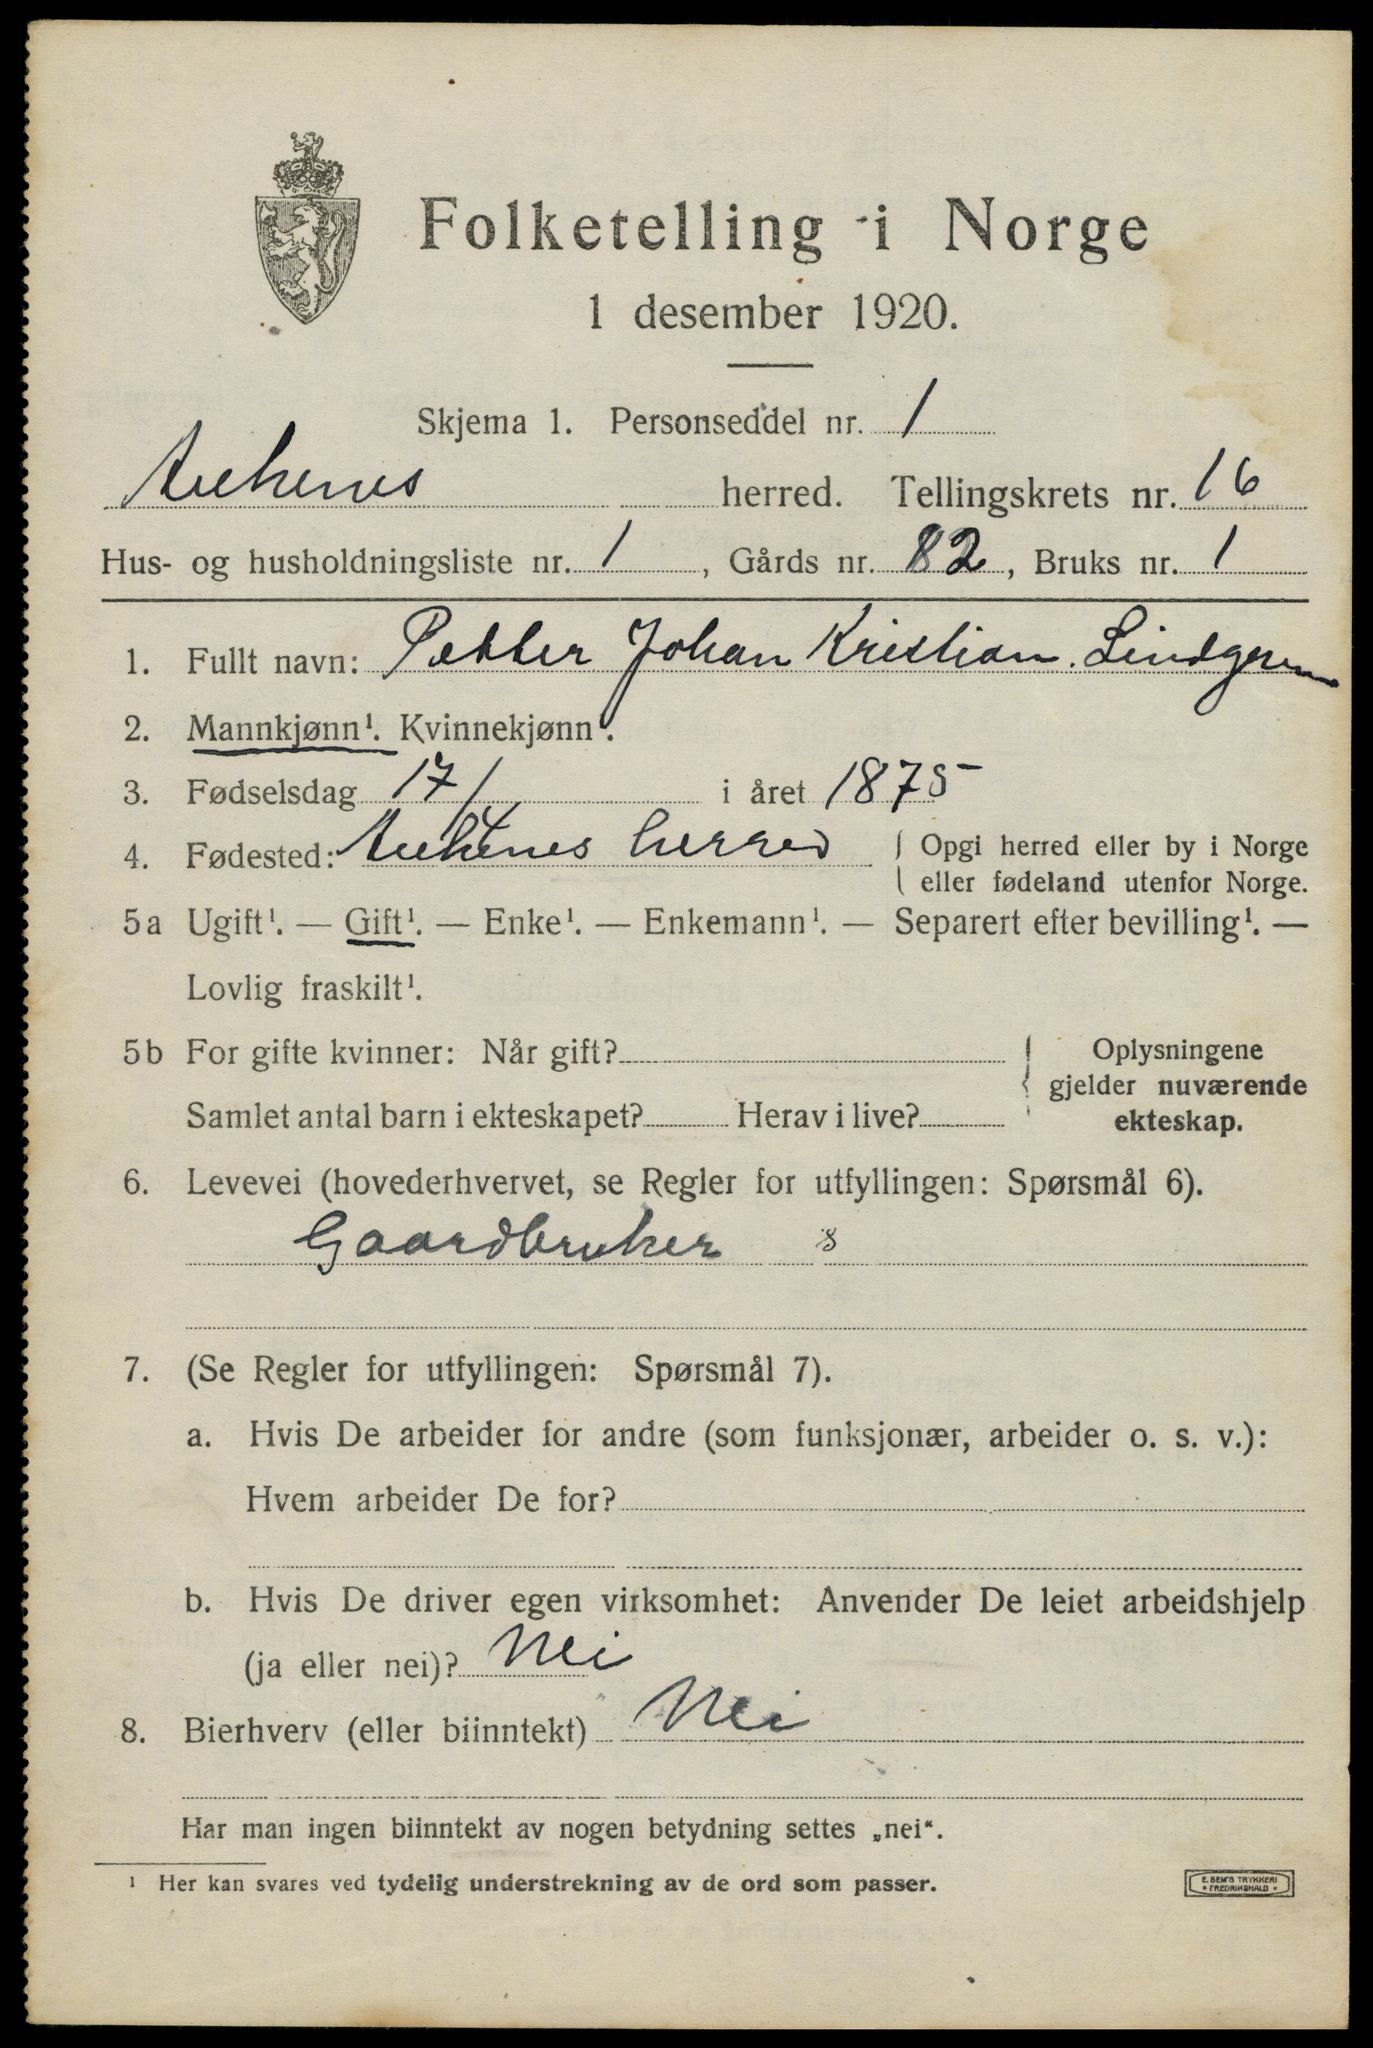 Folketelling i Norge
1 desember 1920.
Skjema 1. Personseddel nr. 1
Ankenes herred. Tellingskrets nr. 16
Hus- og husholdningsliste nr. 1, Gårds nr. 82, Bruks nr. 1
1. Fullt navn: Petter Johan Kristian Lindgren
2. Mannkjønn¹. Kvinnekjønn¹.
3. Fødselsdag 17/4 i året 1875
4. Fødested: Ankenes herred { Opgi herred eller by i Norge
eller fødeland utenfor Norge.
5a Ugift¹. — Gift¹. — Enke¹. — Enkemann¹. — Separert efter bevilling¹. —
Lovlig fraskilt¹.
5b For gifte kvinner: Når gift? { Oplysningene
gjelder nuværende
Samlet antal barn i ekteskapet? Herav i live? ekteskap.
6. Levevei (hovederhvervet, se Regler for utfyllingen: Spørsmål 6).
Gaardbruker s
7. (Se Regler for utfyllingen: Spørsmål 7).
a. Hvis De arbeider for andre (som funksjonær, arbeider o. s. v.):
Hvem arbeider De for?
b. Hvis De driver egen virksomhet: Anvender De leiet arbeidshjelp
(ja eller nei)? Nei
8. Bierhverv (eller biinntekt) Nei
Har man ingen biinntekt av nogen betydning settes „nei“.
¹ Her kan svares ved tydelig understrekning av de ord som passer.
E. SEM'S TRYKKERI
• FREDRIKSHALD •